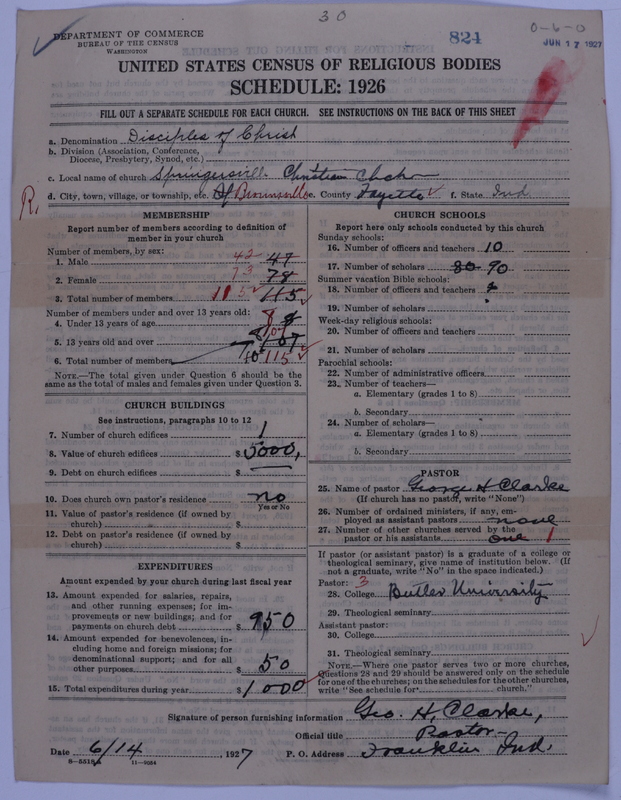 30
DEPARTMENT OF COMMERCE
BUREAU OF THE CENSUS
WASHINGTON
824
0-6-0
JUN 17 1927
UNITED STATES CENSUS OF RELIGIOUS BODIES
SCHEDULE: 1926
FILL OUT A SEPARATE SCHEDULE FOR EACH CHURCH. SEE INSTRUCTIONS ON THE BACK OF THIS SHEET
a. Denomination Disciples of Christ
b. Division (Association, Conference,
Diocese, Presbytery, Synod, etc.)
c. Local name of church Springersville Christian
R.
d. City, town, village, or township, etc. Brownsville e. County Fayette f. State Ind
MEMBERSHIP
Report number of members according to definition of
member in your church
Number of members, by sex:
1. Male 42 47
2. Female 73 78
3. Total number of members 115 115
Number of members under and over 13 years old:
4. Under 13 years of age 8 8
5. 13 years old and over 107 107
6. Total number of members 115
NOTE.—The total given under Question 6 should be the
same as the total of males and females given under Question 3.
CHURCH BUILDINGS
See instructions, paragraphs 10 to 12
7. Number of church edifices 1
8. Value of church edifices $ 5000,
9. Debt on church edifices $
10. Does church own pastor's residence no
Yes or No
11. Value of pastor's residence (if owned by
church) $
12. Debt on pastor's residence (if owned by
church) $
EXPENDITURES
Amount expended by your church during last fiscal year
13. Amount expended for salaries, repairs,
and other running expenses; for im-
provements or new buildings; and for
payments on church debt $ 950
14. Amount expended for benevolences, in-
cluding home and foreign missions; for
denominational support; and for all
other purposes $ 50
15. Total expenditures during year $ 1000
CHURCH SCHOOLS
Report here only schools conducted by this church
Sunday schools:
16. Number of officers and teachers 10
17. Number of scholars 80 90
Summer vacation Bible schools:
18. Number of officers and teachers
19. Number of scholars
Week-day religious schools:
20. Number of officers and teachers
21. Number of scholars
Parochial schools:
22. Number of administrative officers
23. Number of teachers—
a. Elementary (grades 1 to 8)
b. Secondary
24. Number of scholars—
a. Elementary (grades 1 to 8)
b. Secondary
PASTOR
25. Name of pastor George H Clarke
(If church has no pastor, write "None")
26. Number of ordained ministers, if any, em-
ployed as assistant pastors none
27. Number of other churches served by the
pastor or his assistants one 1
If pastor (or assistant pastor) is a graduate of a college or
theological seminary, give name of institution below. (If
not a graduate, write "No" in the space indicated.)
Pastor: 3
28. College Butler University
29. Theological seminary
Assistant pastor:
30. College
31. Theological seminary
NOTE.—Where one pastor serves two or more churches,
Questions 28 and 29 should be answered only on the schedule
for one of the churches; on the schedules for the other churches,
write "See schedule for church."
Signature of person furnishing information Geo. H. Clarke,
Official title Pastor-
Date 6/14, 1927 P. O. Address Franklin Ind.
8—5518a 11—9584